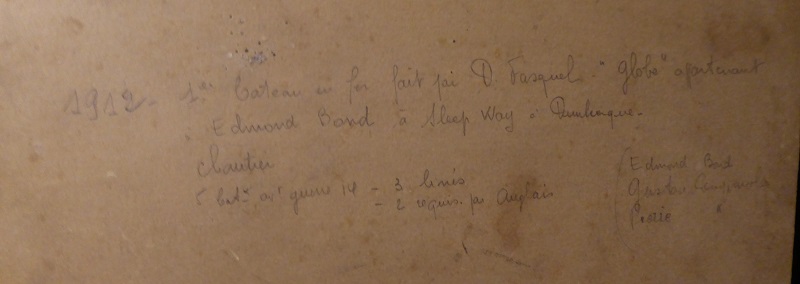 1912 - 1er bateau en fer fait par D. Fasquel. "Globe" apartenant
à Edmond Bard à Sleep Way à Dunkerque.
chantier
5 bat. avt guerre 14 - 3 
- 2 requis. par Anglais
Edmond Bard
Gaston
"